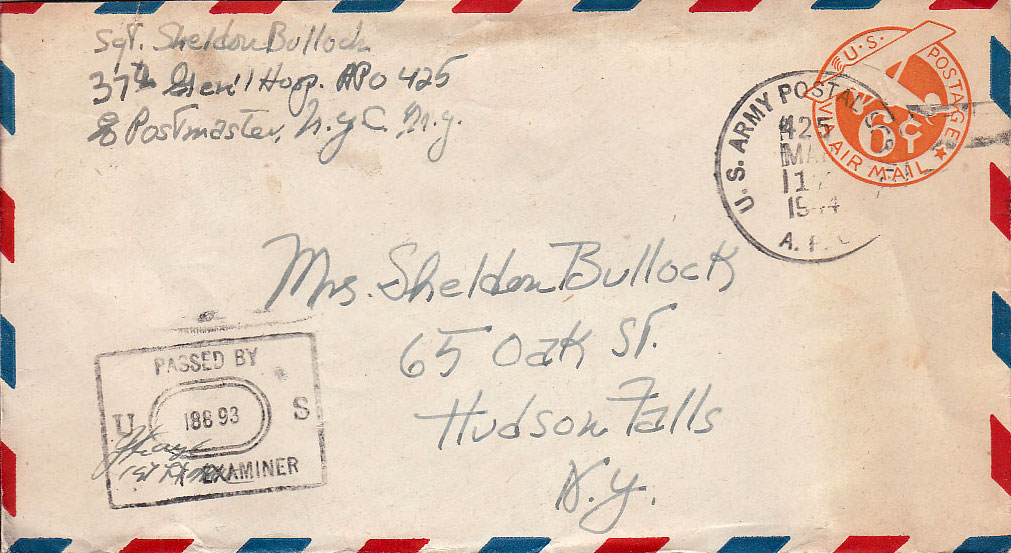 Sgt. Sheldon Bullock
37th Gen'l Hosp. APO 425
% Postmaster, N.Y.C. N.Y.
U.S. POSTAGE
6¢
VIA AIR MAIL
U.S. ARMY POSTAL
425
MAR
1944
A.P.O
Mrs. Sheldon Bullock
65 Oak St.
Hudson Falls
N.Y.
PASSED BY
U 18893 S
EXAMINER